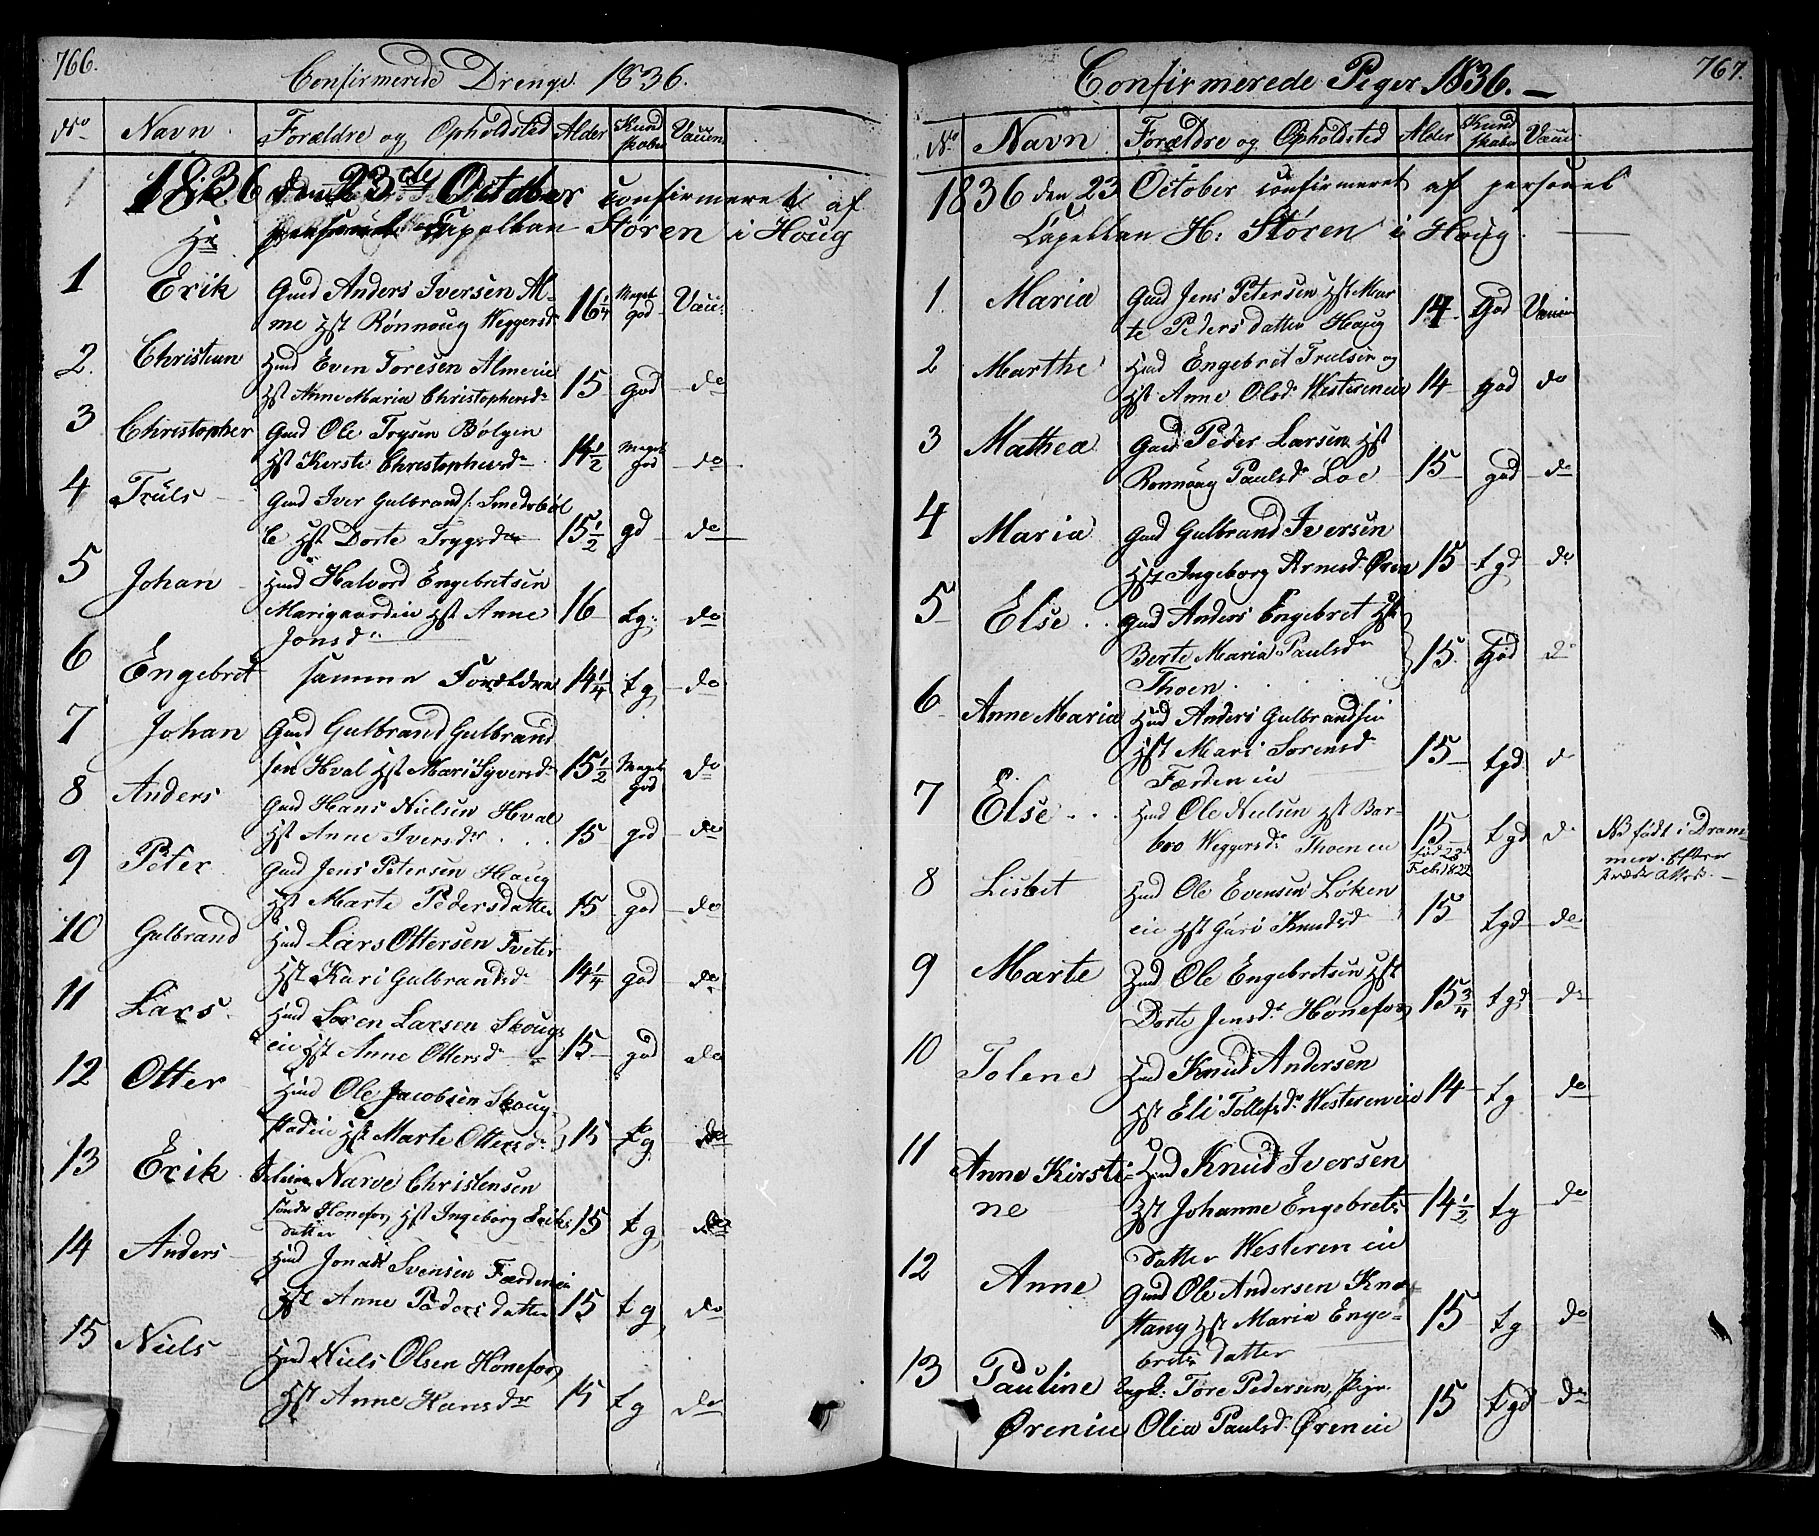 766.
Confirmerede Drenge 1836.
No Navn Forældre og Opholdsted Alder Kundskaber Vaccin
1836 den 23de October confirmeret af
personel Capellan Støren i Houg
1 Erik Gmd Anders Iversen Al-
me Hst Rønnoug Weggersd 16 1/4 Meget god Vacc:
2. Christian Hmd Even Toresen Almeeie
Hst Anne Maria Christophersd 15 god do
3 Christopher Gmd Ole Trysen Bølgen
Hst Kerste Christophersd 14 1/2 Meget god do
4 Truls Gmd Iver Gulbrands: Smedsbøl
le Hst Dorte Trygsd 15 1/2 gd do
5 Johan Hmd Halvord Engebretsen
Marigaardeie Hst Anne 16 tg: do
Jonsd
6 Engebret samme Forældre 14 1/4 tg do
7 Johan Gmd Gulbrand Gulbrand
sen Hval Hst Mari Syversd 15 1/2 Meget God do
8 Anders Gmd Hans Nielsen Hval
Hst Anne Iversdr 15 god do
9 Peter Gmd Jens Petersen Haug
Hst Marte Pedersdatter 15 god do
10 Gulbrand Hmd Lars Ottersen Tveter
Hst Kari Gulbrandsd 14 1/4 god do
11 Lars Hmd Søren Larsen Skougs
eie Hst Anne Ottersd 15 god do
12 Otter Hmd Ole Jacobsen Skoug-
stadeie Hst Marte Ottersd 15 tg do
13 Erik Narve Christensen
Hønefos Hst Ingeborg Eriks
datter 15 tg do
14 Anders Hmd Jonas Svensen Færdeneie
Hst Anne Pedersdatter 15 tg do
15 Niels Hmd Niels Olsen Hønefos
Hst Anne Hansdr 15 tg do
767.
Confirmerede Piger 1836.
No. Navn Forældre og Opholdsted Alder Kundskaber Vacci
1836 den 23 October confirmeret af personel
Capellan H: Støren i Houg.
1 Maria Gmd Jens Petersen Hst Mar
te Pedersdatter Haug 14 God Vaccin
2 Marthe Hmd Engebret Trulsen og
Hst Anne Olsd Westereneie 14 god do
3 Mathea Gmd Peder Larsen Hst
Rønnoug Paulsd Loe 15 god do
4 Maria Gmd Gulbrand Iversen
Hst Ingeborg Arnesd Øren 15 tgd do
5 Else Gmd Anders Engebret Hst
Berte Maria Paulsdr 15 God do
Thoen
6 Anne Maria Hmd Anders Gulbrandsen
Hst Mari Sørensd 15 tgd d
Færdeneie
7 Else Hmd Ole Nielsen Hst Bar-
bro Weggersd Thoeneie 15 tgd do NB født i Dram
men. Efter
Præste Attest.
født 23d
Feb. 1822
8 Lisbet Hmd Ole Evensen Løken
eie Hst Guri Knudsd 15 tgd do
9 Marte Hmd Ole Engebretsen Hst
Dorte Jensd Hønefos 15 3/4 tgd do
10 Tolene Hmd Knud Andersen
Hst Eli Tollefsd Westereneie 14 tg do
11 Anne Kirsti-
ne Hmd Knud Iversen
Hst Johanne Engebrets 14 1/2 tg do
datter Westereneie
12 Anne Gmd Ole Andersen Kne
stang Hst Maria Enge- 15 tg do
bretsdatter
13 Pauline Ungk: Tore Pedersen, Pige
Øreneie Olia Paulsd Øreneie 15 tgd do